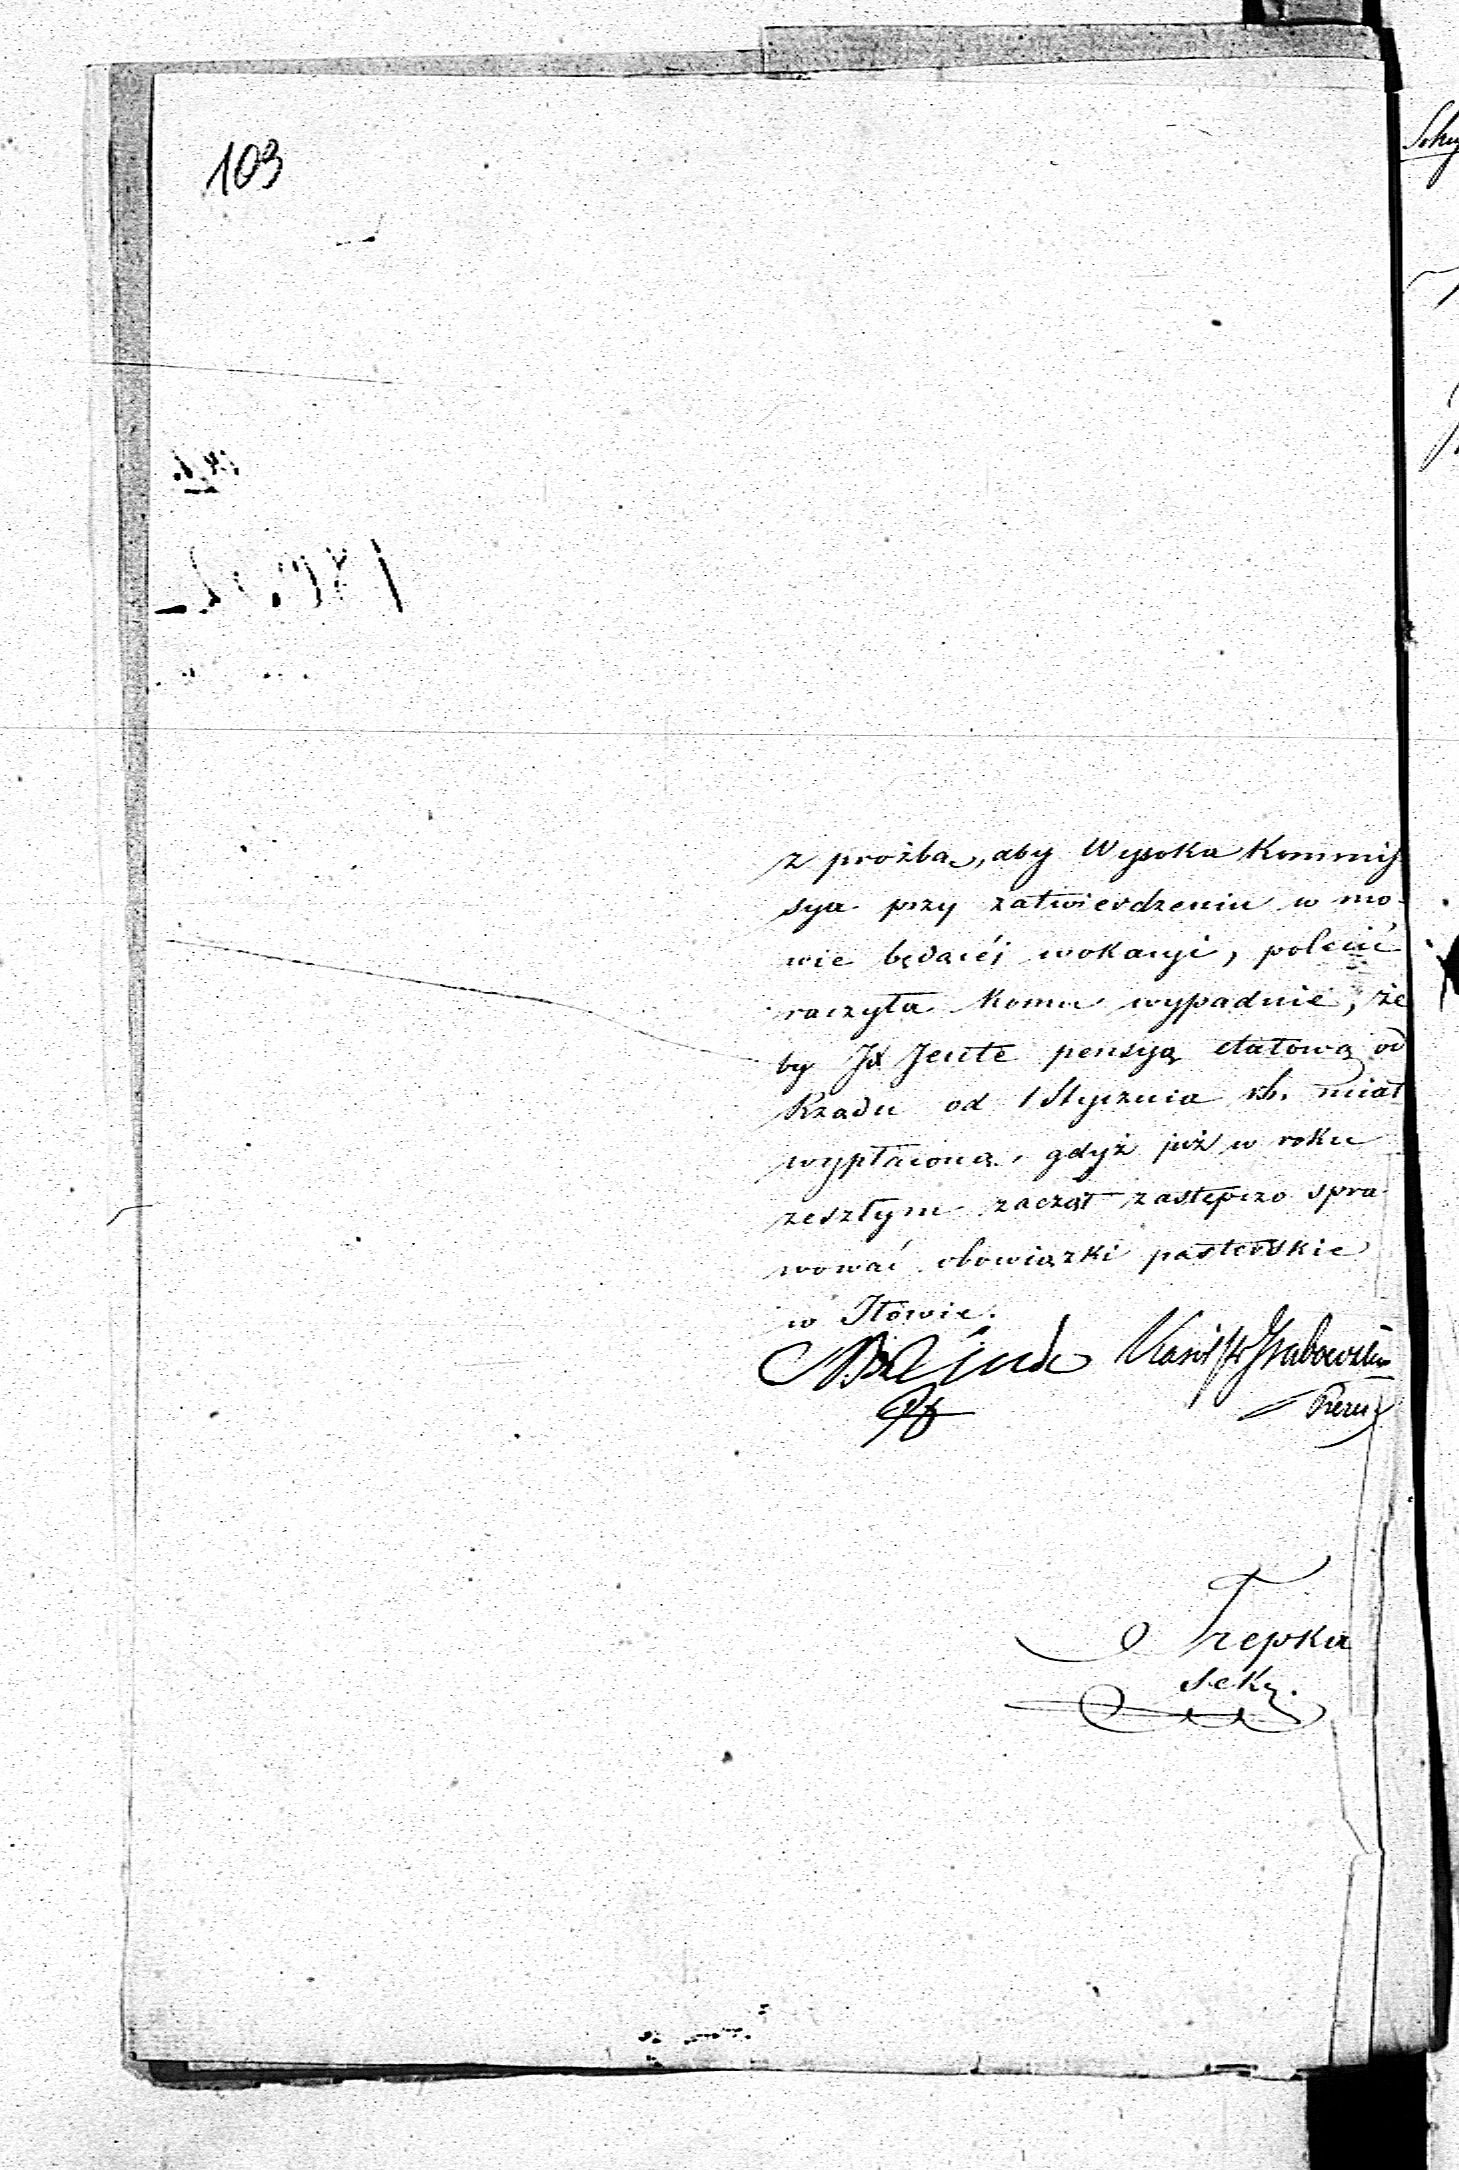 103
z prożbą, aby Wysoka Kommis
sya przy zatwierdzeniu w mo-
wie będącéj wokacyi, polecić
raczyła komu wypadnie, że
by JX Jeute pensyą etatową od
Rządu od 1 Stycznia rb. miał
wypłaconą, gdyż już w roku
zeszłym zaczął zastępczo spra
wować obowiązki pasterskie
w Iłowie.
Grabowski
Prezes
Trepka
Sekr.